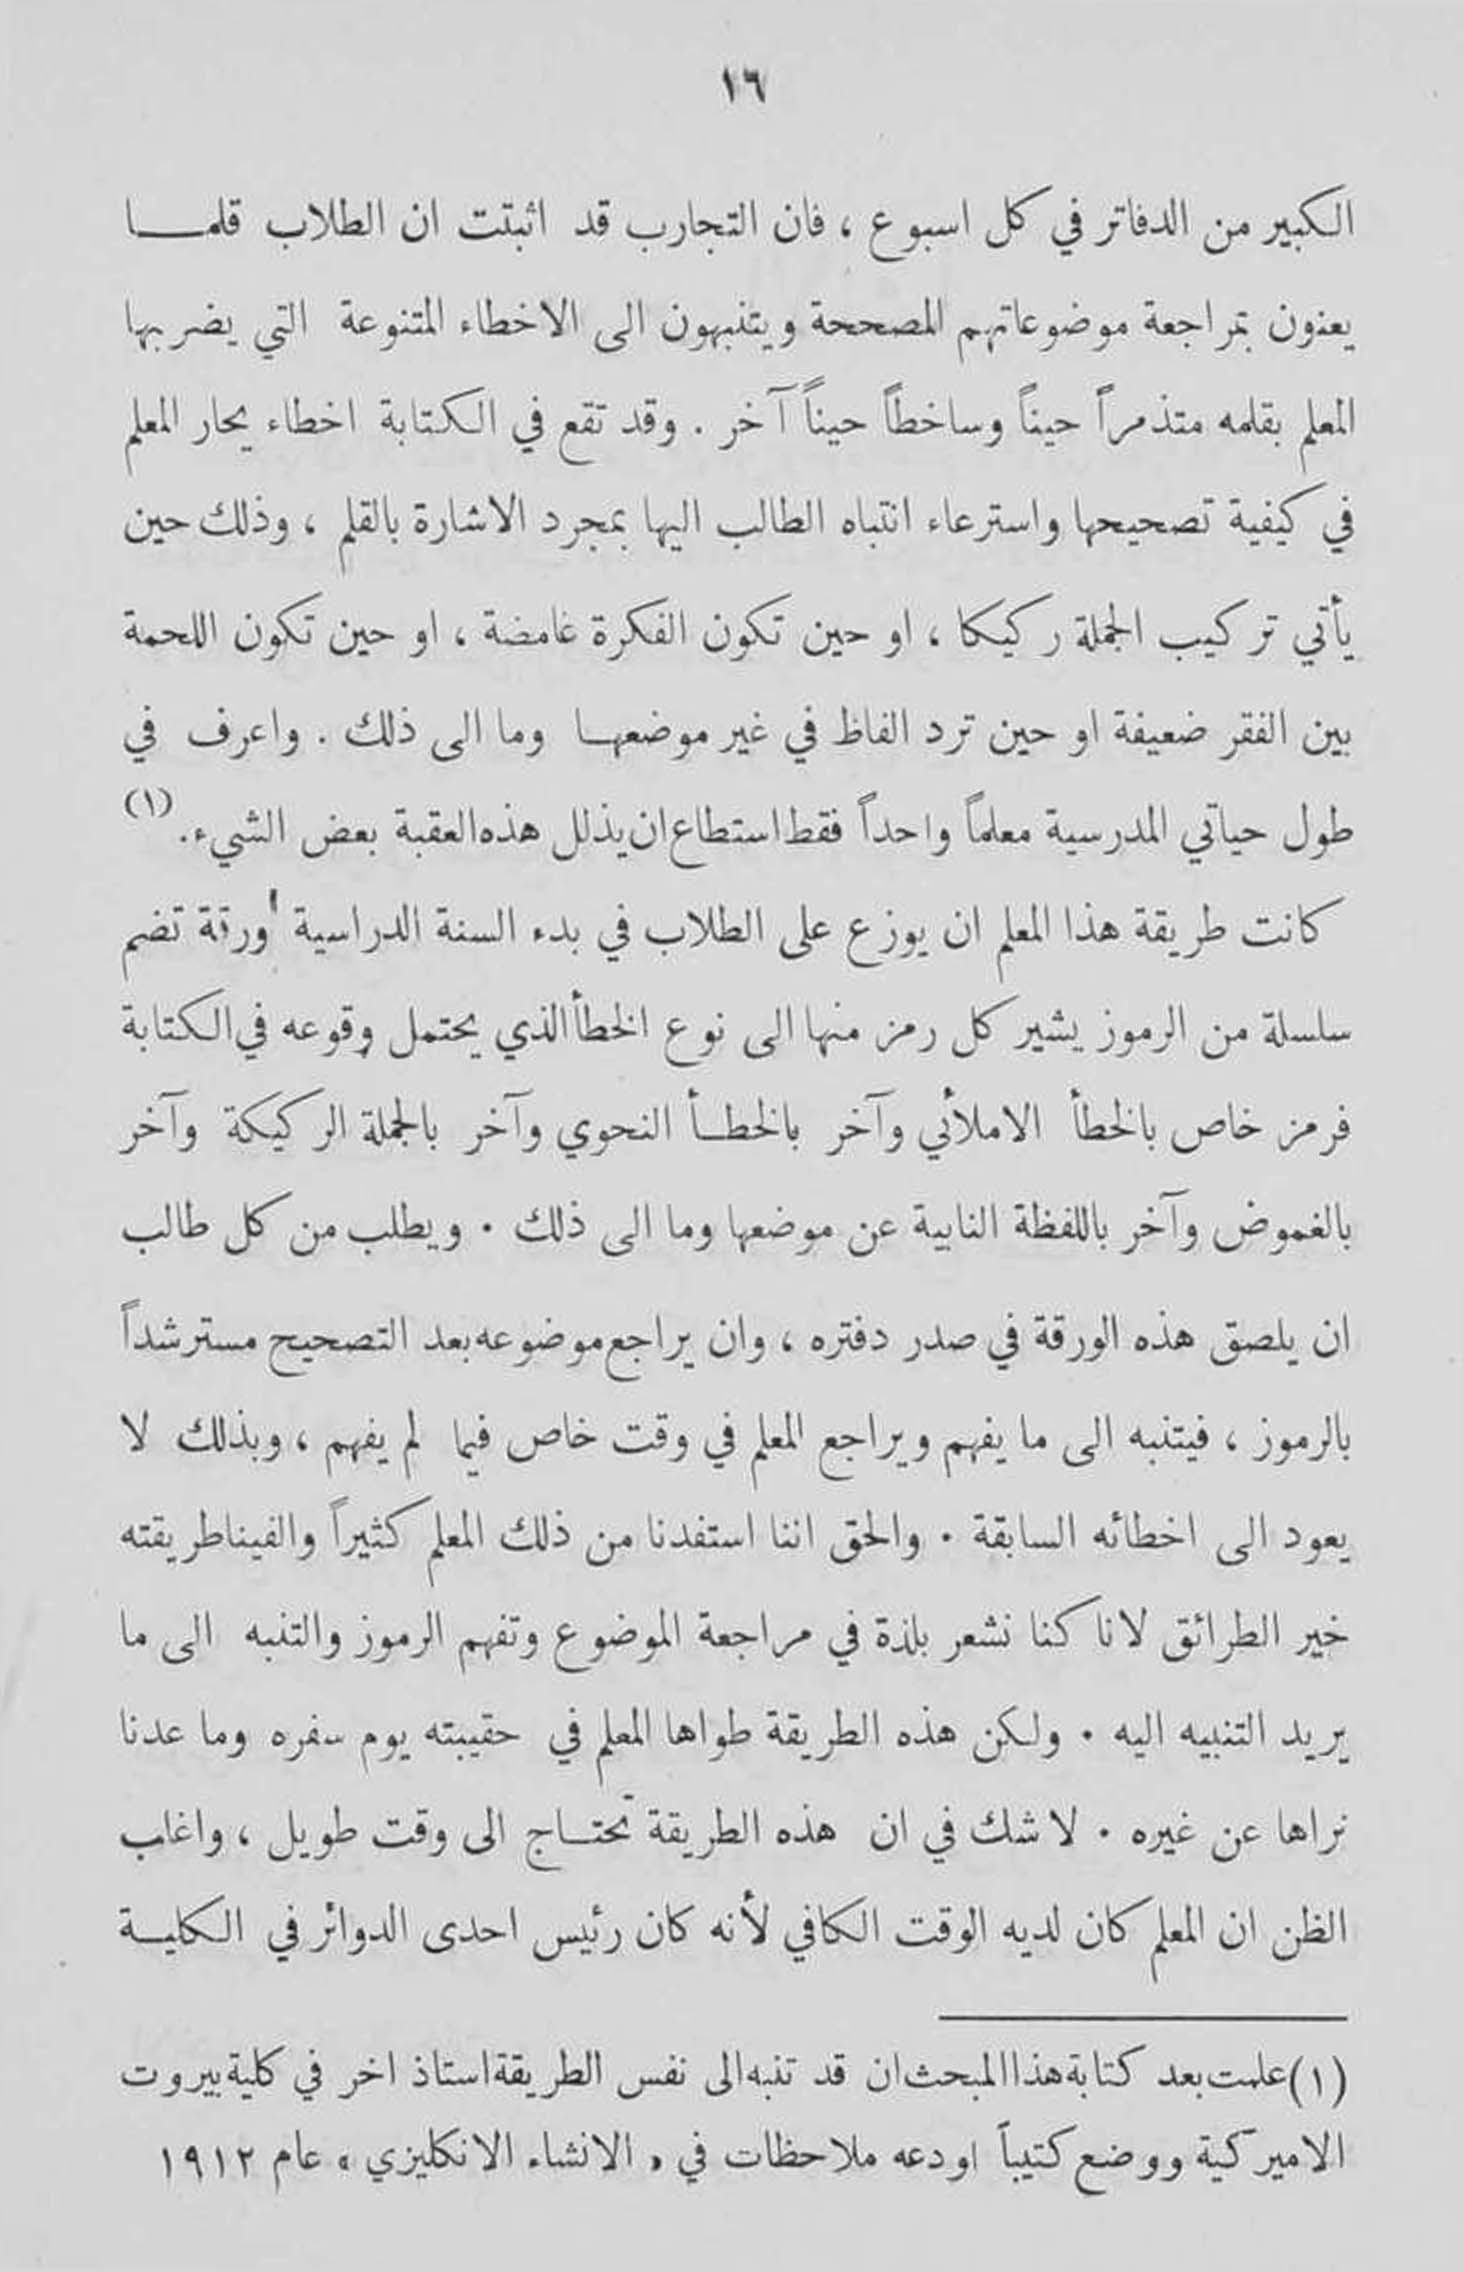 ١٦
الكبير من الدفاتر في كل اسبوع ، فان التجارب قد اثبتت ان الطلاب قلما
يعنون بمراجعة موضوعاتهم المصححة ويتنبهون الى الاخطاء المتنوعة التي يضربها
المعلم بقلمه متذمراً حيناً وساخطاً حيناً آخر . وقد تقع في الكتابة اخطاء يحار المعلم
في كيفية تصحيحها واسترعاء انتباه الطالب اليها بمجرد الاشارة بالقلم ، وذلك حين
يأتي تركيب الجملة ركيكا ، او حين تكون الفكرة غامضة ، او حين تكون اللحمة
بين الفقر ضعيفة او حين ترد الفاظ في غير موضعها وما الى ذلك . واعرف في
طول حياتي المدرسية معلماً واحداً فقط استطاع ان يذلل هذه العقبة بعض الشيء. (١)
كانت طريقة هذا المعلم ان يوزع على الطلاب في بدء السنة الدراسية ورقة تضم
سلسلة من الرموز يشير كل رمز منها الى نوع الخطأ الذي يحتمل وقوعه في الكتابة
فرمز خاص بالخطأ الاملائي وآخر بالخطأ النحوي وآخر بالجملة الركيكة وآخر
بالغموض وآخر باللفظة النابية عن موضعها وما الى ذلك . ويطلب من كل طالب
ان يلصق هذه الورقة في صدر دفتره ، وان يراجع موضوعه بعد التصحيح مسترشداً
بالرموز ، فيتنبه الى ما يفهم ويراجع المعلم في وقت خاص فيما لم يفهم ، وبذلك لا
يعود الى اخطائه السابقة . والحق اننا استفدنا من ذلك المعلم كثيراً والفينا طريقته
خير الطرائق لانا كنا نشعر بلذة في مراجعة الموضوع وتفهم الرموز والتنبه الى ما
يريد التنبيه اليه . ولكن هذه الطريقة طواها المعلم في حقيبته يوم سفره وما عدنا
نراها عن غيره . لا شك في ان هذه الطريقة تحتاج الى وقت طويل ، واغلب
الظن ان المعلم كان لديه الوقت الكافي لأنه كان رئيس احدى الدوائر في الكلية
(١) علمت بعد كتابة هذا المبحث ان قد تنبه الى نفس الطريقة استاذ اخر في كلية بيروت
الاميركية ووضع كتيباً اودعه ملاحظات في « الانشاء الانكليزي » عام ١٩١٢